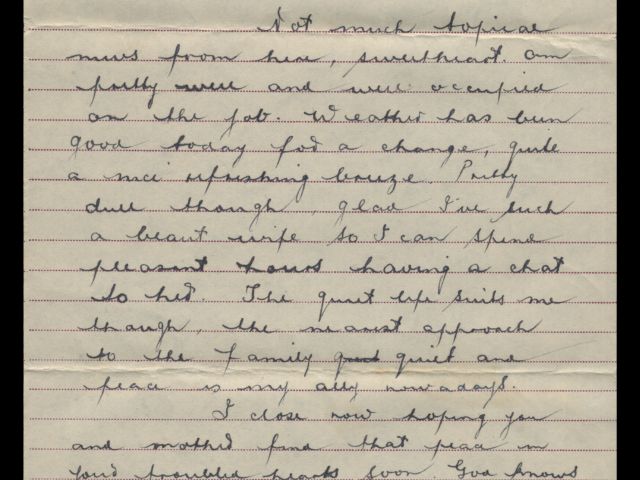 Not much topical
news from here, sweetheart. Am
pretty well and well occupied
on the job. Weather has been
good today for a change, quite
a nice refreshing breeze. Pretty
dull though, glad I've such
a beaut wife so I can spend
pleasant hours having a chat
to her. The quiet life suits me
though, the nearest approach
to the family quiet and
peace is my ally nowadays.
I close now hoping you
and mother find that peace in
your troubled hearts soon. God knows